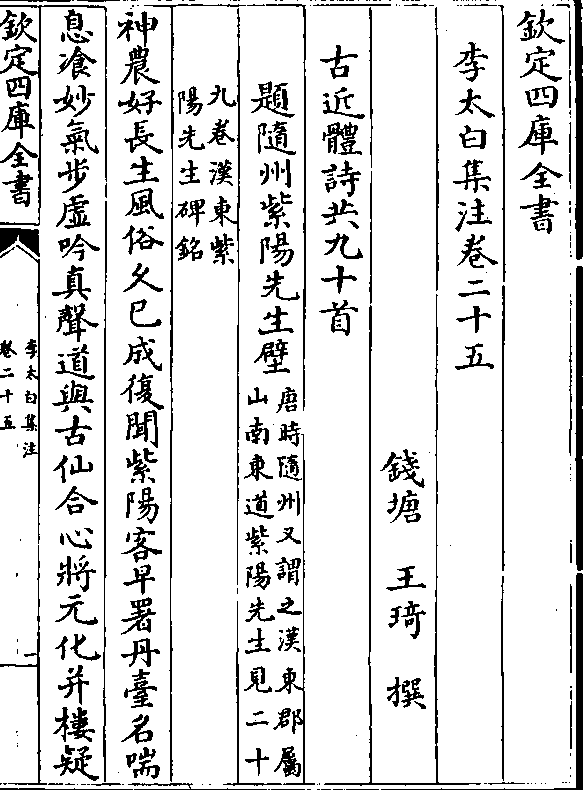 欽定四庫全書
李太白集注卷二十五
錢塘 王琦 撰
古近體詩共九十首
題隨州紫陽先生壁
唐時隨州又謂之漢東郡屬
山南東道紫陽先生見二十
九卷漢東紫
陽先生碑銘
神農好長生風俗久已成復聞紫陽客早署丹臺名喘
息飡妙氣步虛吟真聲道與古仙合心將元化并樓疑
欽定四庫全書
李太白集注
卷二十五
一